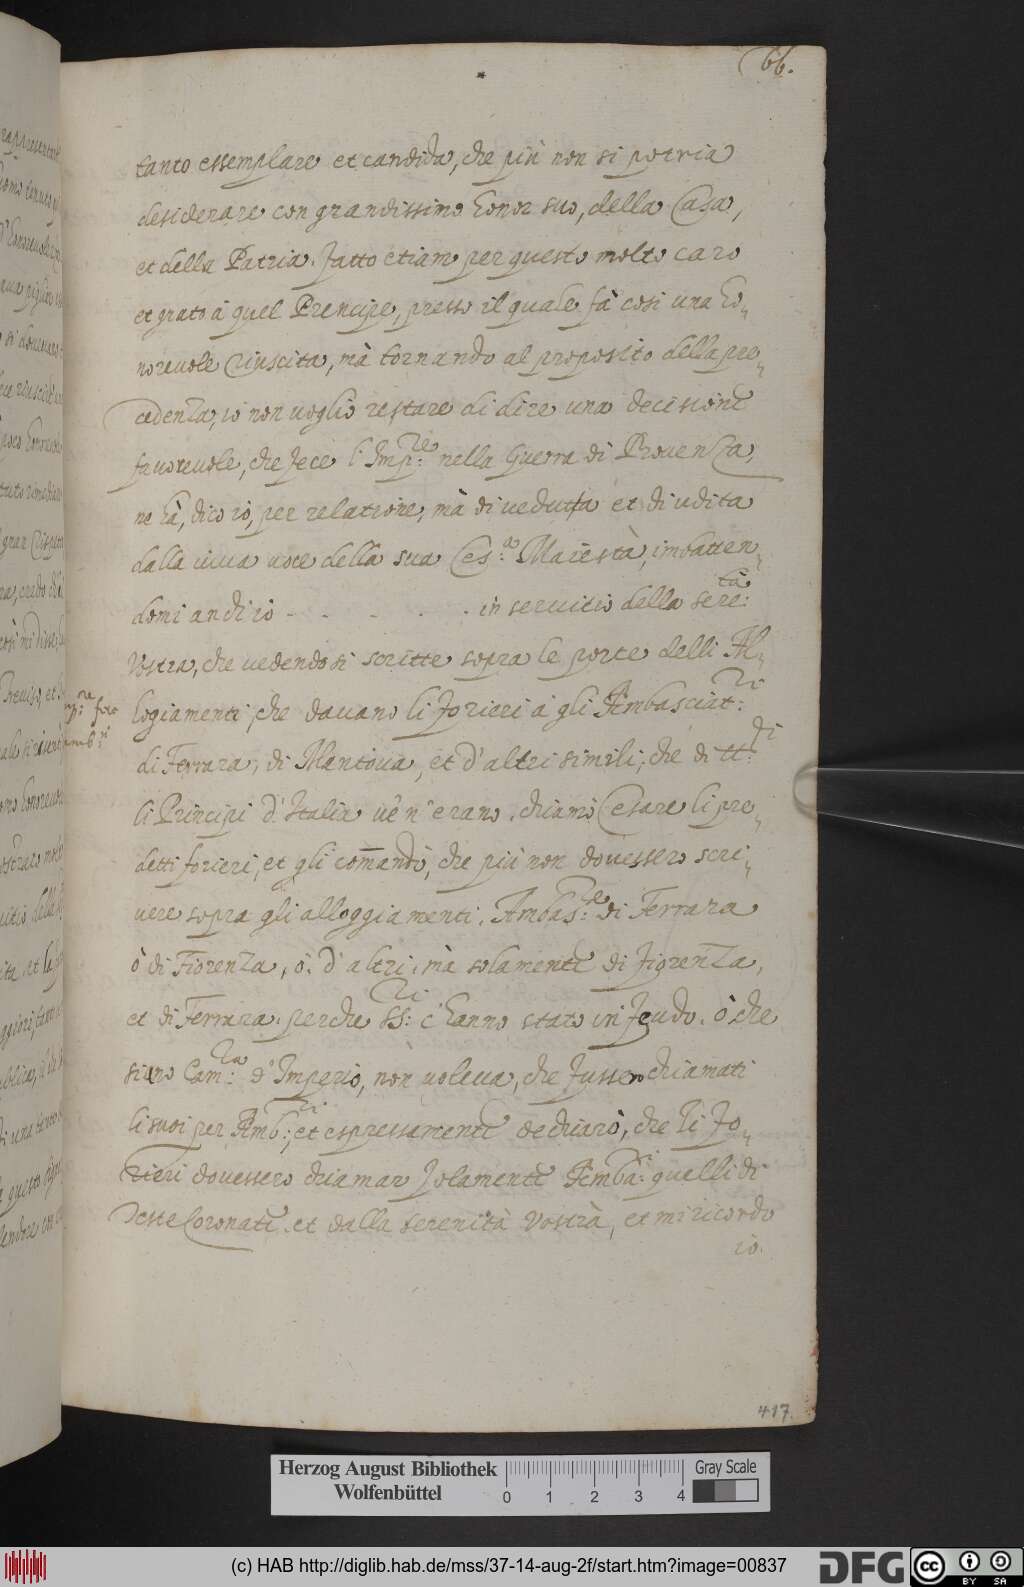 66.
tanto essemplare et candida, che più non si potria
desiderare con grandissimo honor suo, della Casa,
et della Patria. fatto etiam per questo molto caro
et grato à quel Prencipe, presso il quale fà cosi una ho„
noreuole riuscita, mà tornando al proposito della pre„
cedenza, io non uoglio restare di dire una decisione
fauoreuole, che fece l'Imp:re nella Guerra di Prouenza,
ne hà, dico io, per relatione, mà di ueduta et di udita
dalla uiua uoce della sua Ces:a Maiestà, imbatten„
domi andirio - . - . - . in seruitio della sere:tà
Vostra, che uedendosi scritte sopra le porte delli Al„
logiamenti, che dauano li forieri à gli Ambasciat:ri
di Ferrara, di Mantoua, et d'altri simili, che di tt:di
li Principi d'Italia uè n'erano. chiamò Cesare li pre„
detti forieri, et gli comandò, che più non douessero scri„
uere sopra gli alloggiamenti. Ambas:re di Ferrara
ò di Fiorenza, ò d'altri, mà solamente di fiorenza,
et di Ferrara. perche ss:ri c'hanno stato in feudo. ò che
siano Cam:ra d'Imperio, non uoleua, che fussero chiamati
li suoi per Amb:ri, et espressamente dechiarò, che li fo„
rieri douessero chiamar solamente Amba:ri quelli di
Teste Coronate. et dalla serenità Vostra, et mi ricordo
io.
417
Herzog August Bibliothek
Wolfenbüttel
0 1 2 3 4
Gray Scale
(c) HAB http://diglib.hab.de/mss/37-14-aug-2f/start.htm?image=00837
DFG
cc BY SA